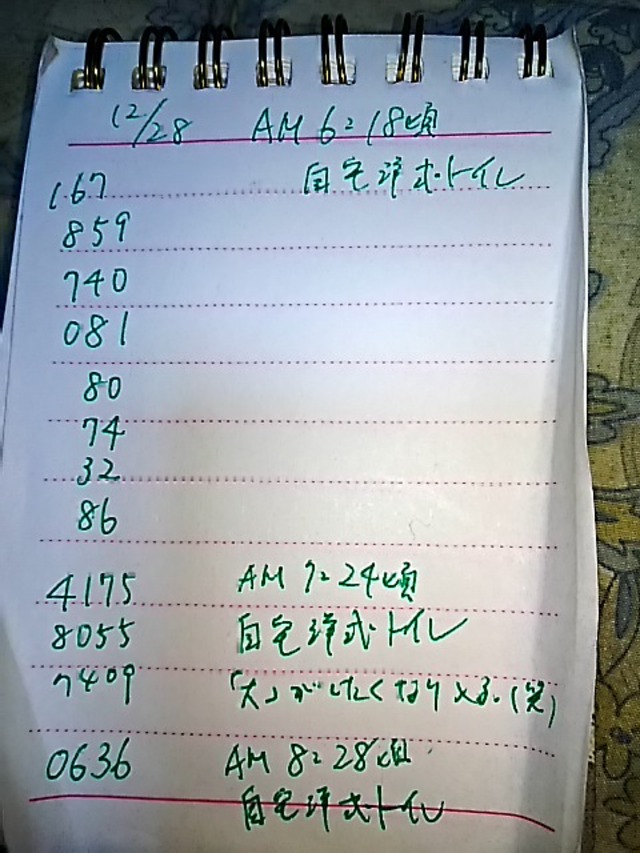 12/28 AM 6:18頃
167 自宅洋式トイレ
859
740
081
80
74
32
86
4175 AM 7:24頃
8055 自宅洋式トイレ
7409 「大」がしたくなり (笑)
0636 AM 8:28頃
自宅洋式トイレ